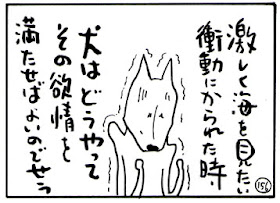 激しく海を見たい
衝動にかられた時
犬はどうやって
その欲情を
満たせばよいのでせう
156